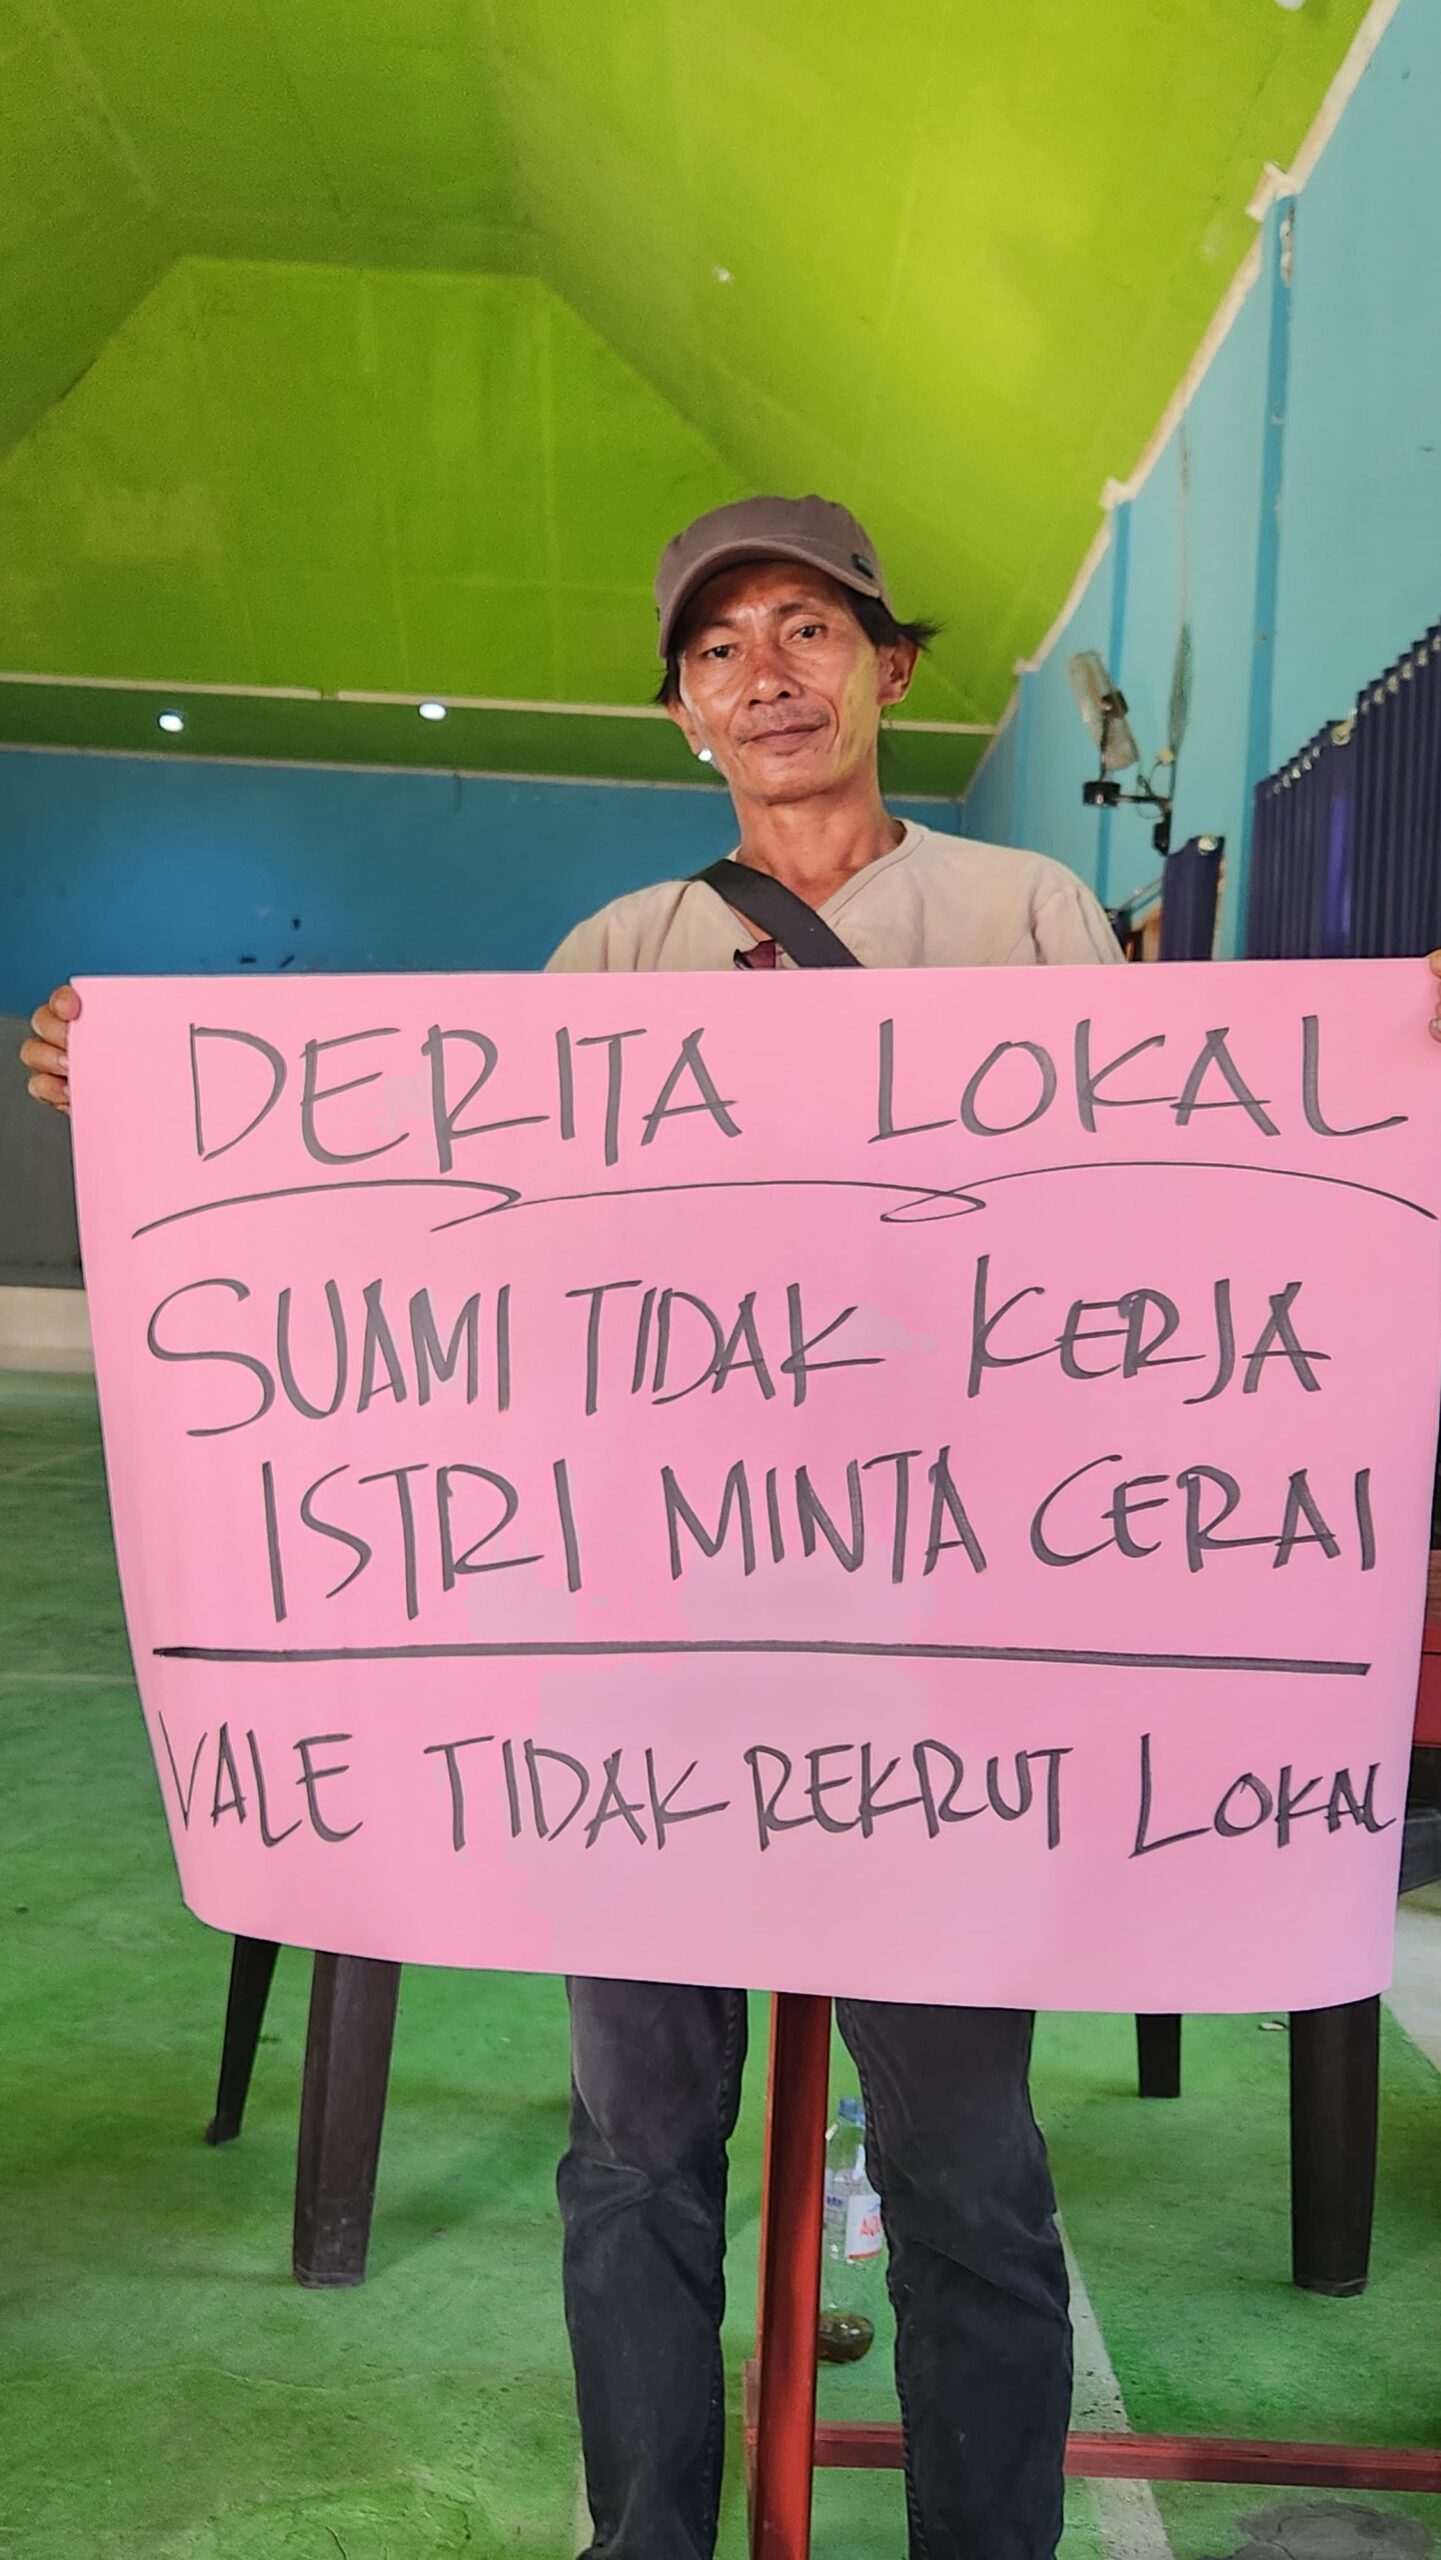 DERITA LOKAL
SUAMI TIDAK KERJA
ISTRI MINTA CERAI
VALE TIDAK REKRUT LOKAL